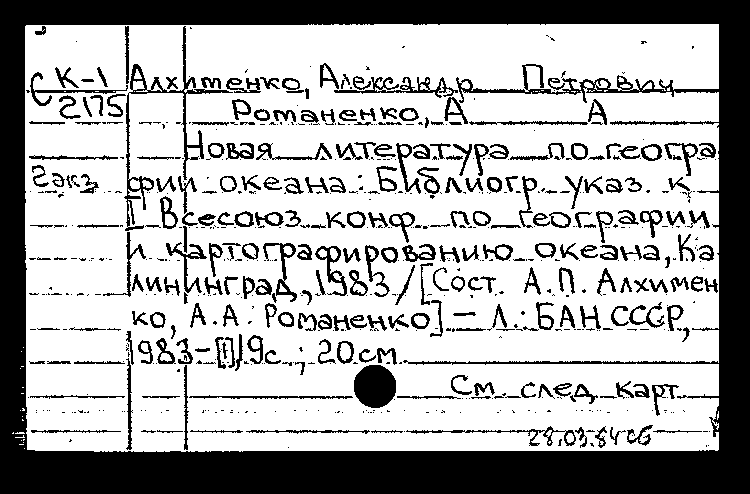 С К-1 Алхименко, Александр Петрович
2175 Романенко, А А
Новая литература по геогра
2экз фии океана: Библиогр. указ. к
I Всесоюз. конф. по географии
и картографированию океана, Ка
лининград, 1983 / [Сост. А.П. Алхимен
ко, А.А. Романенко] – Л.: БАН СССР,
1983 – [1], 19с.; 20см.
См. след. карт.
28.03.84 сб